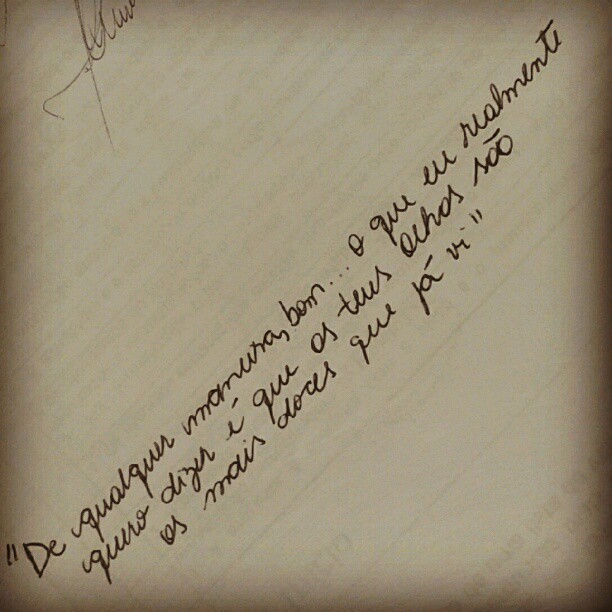 "De qualquer maneira, bom... o que eu realmente
quero dizer é que os teus olhos são
os mais doces que já vi"